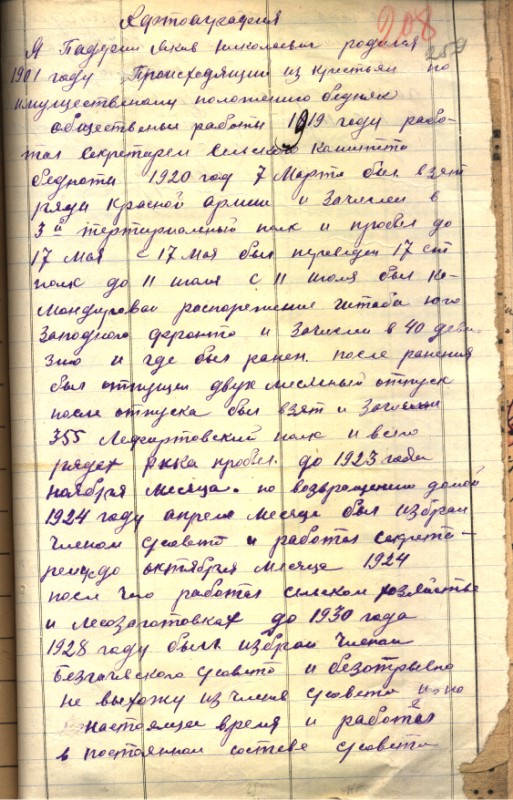 Афтоаграфия
208
259
Я Падурин Яков Николаевич родился
1901 году Происходящий из крестьян по
имущественому положению бедняк
общественые работы 1919 году рабо-
тал Секретарем Сельского Камитета
бедноты 1920 год 7 Марта был взят
ряды Красной армии и Зачислен в
3й полк и пробыл до
17 Мая с 17 Мая был переведен 17 ст
полк до 11 июля с 11 июля был Ко-
мандирован распорежение штаба юго
Западного фронта и Зачислен в 40 деви-
зию и где был ранен. после ранения
был отпущен двух месячный отпуск
после отпуска был взят и Зачислен
355 Лефортовский полк и всего
рядах РККА пробыл до 1923 года
ноября месяца. по возвращению домой
1924 году апреле месяце был избран
членом с/совета и работал секрета-
рем до октября месяца 1924
после чего работал сельском хозяйстве
и лесозаготовках до 1930 года
1928 году был избран членом
с/совета и безотрывно
не выхожу из членов с/совета и по
настоящее время и работал
в постоянном составе с/совета